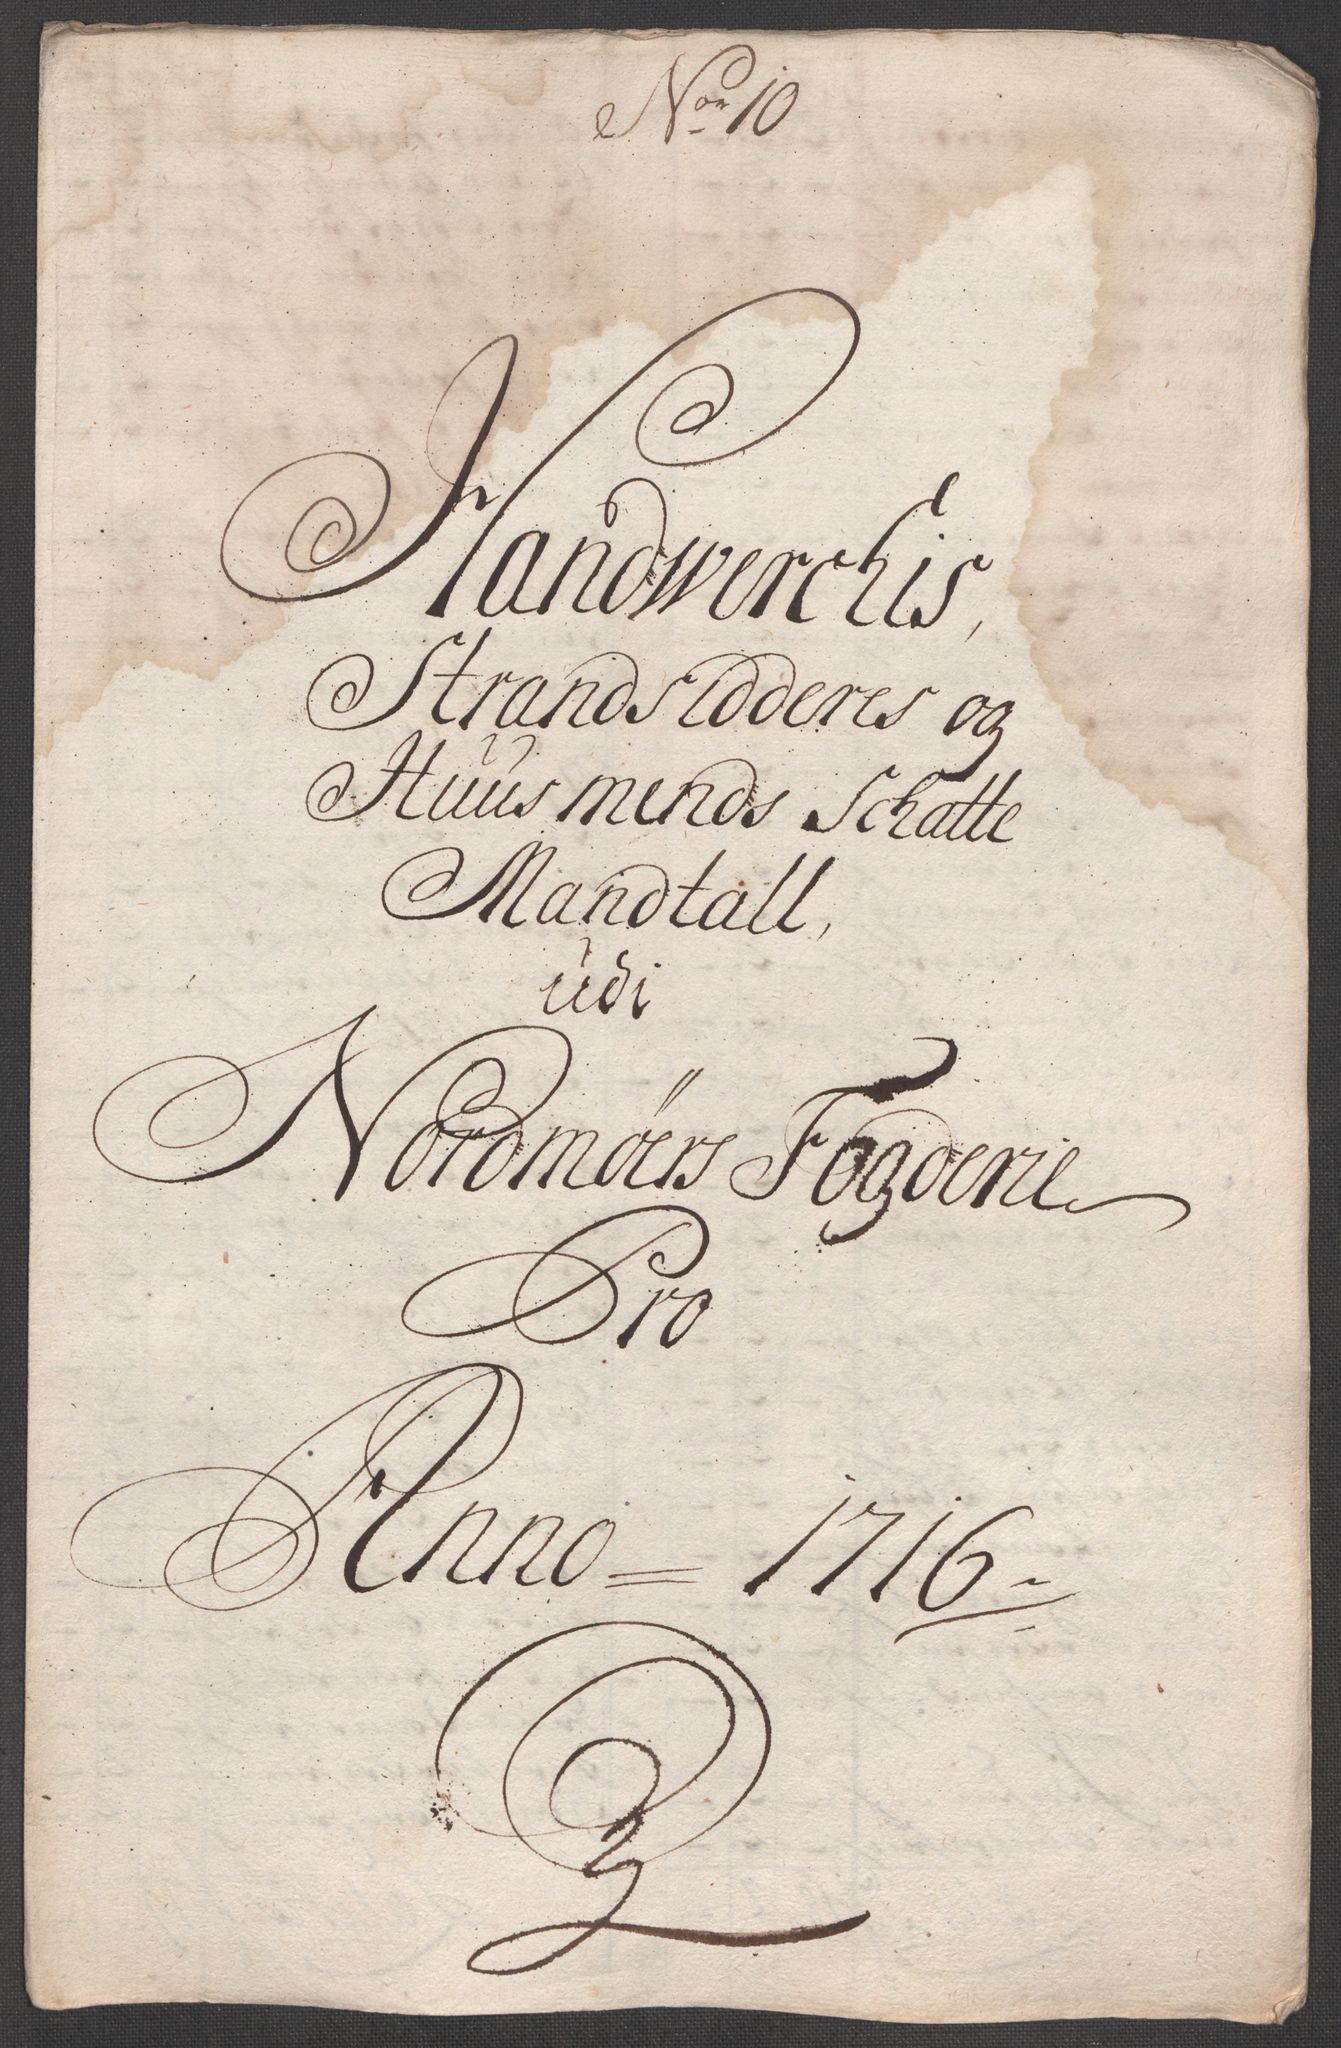 No 10
Handwerchis,
Strandsidderes og
Huusmends Schatte
Mandtall,
udi
Nordmöers Fogderie
Pro
Anno = 1716